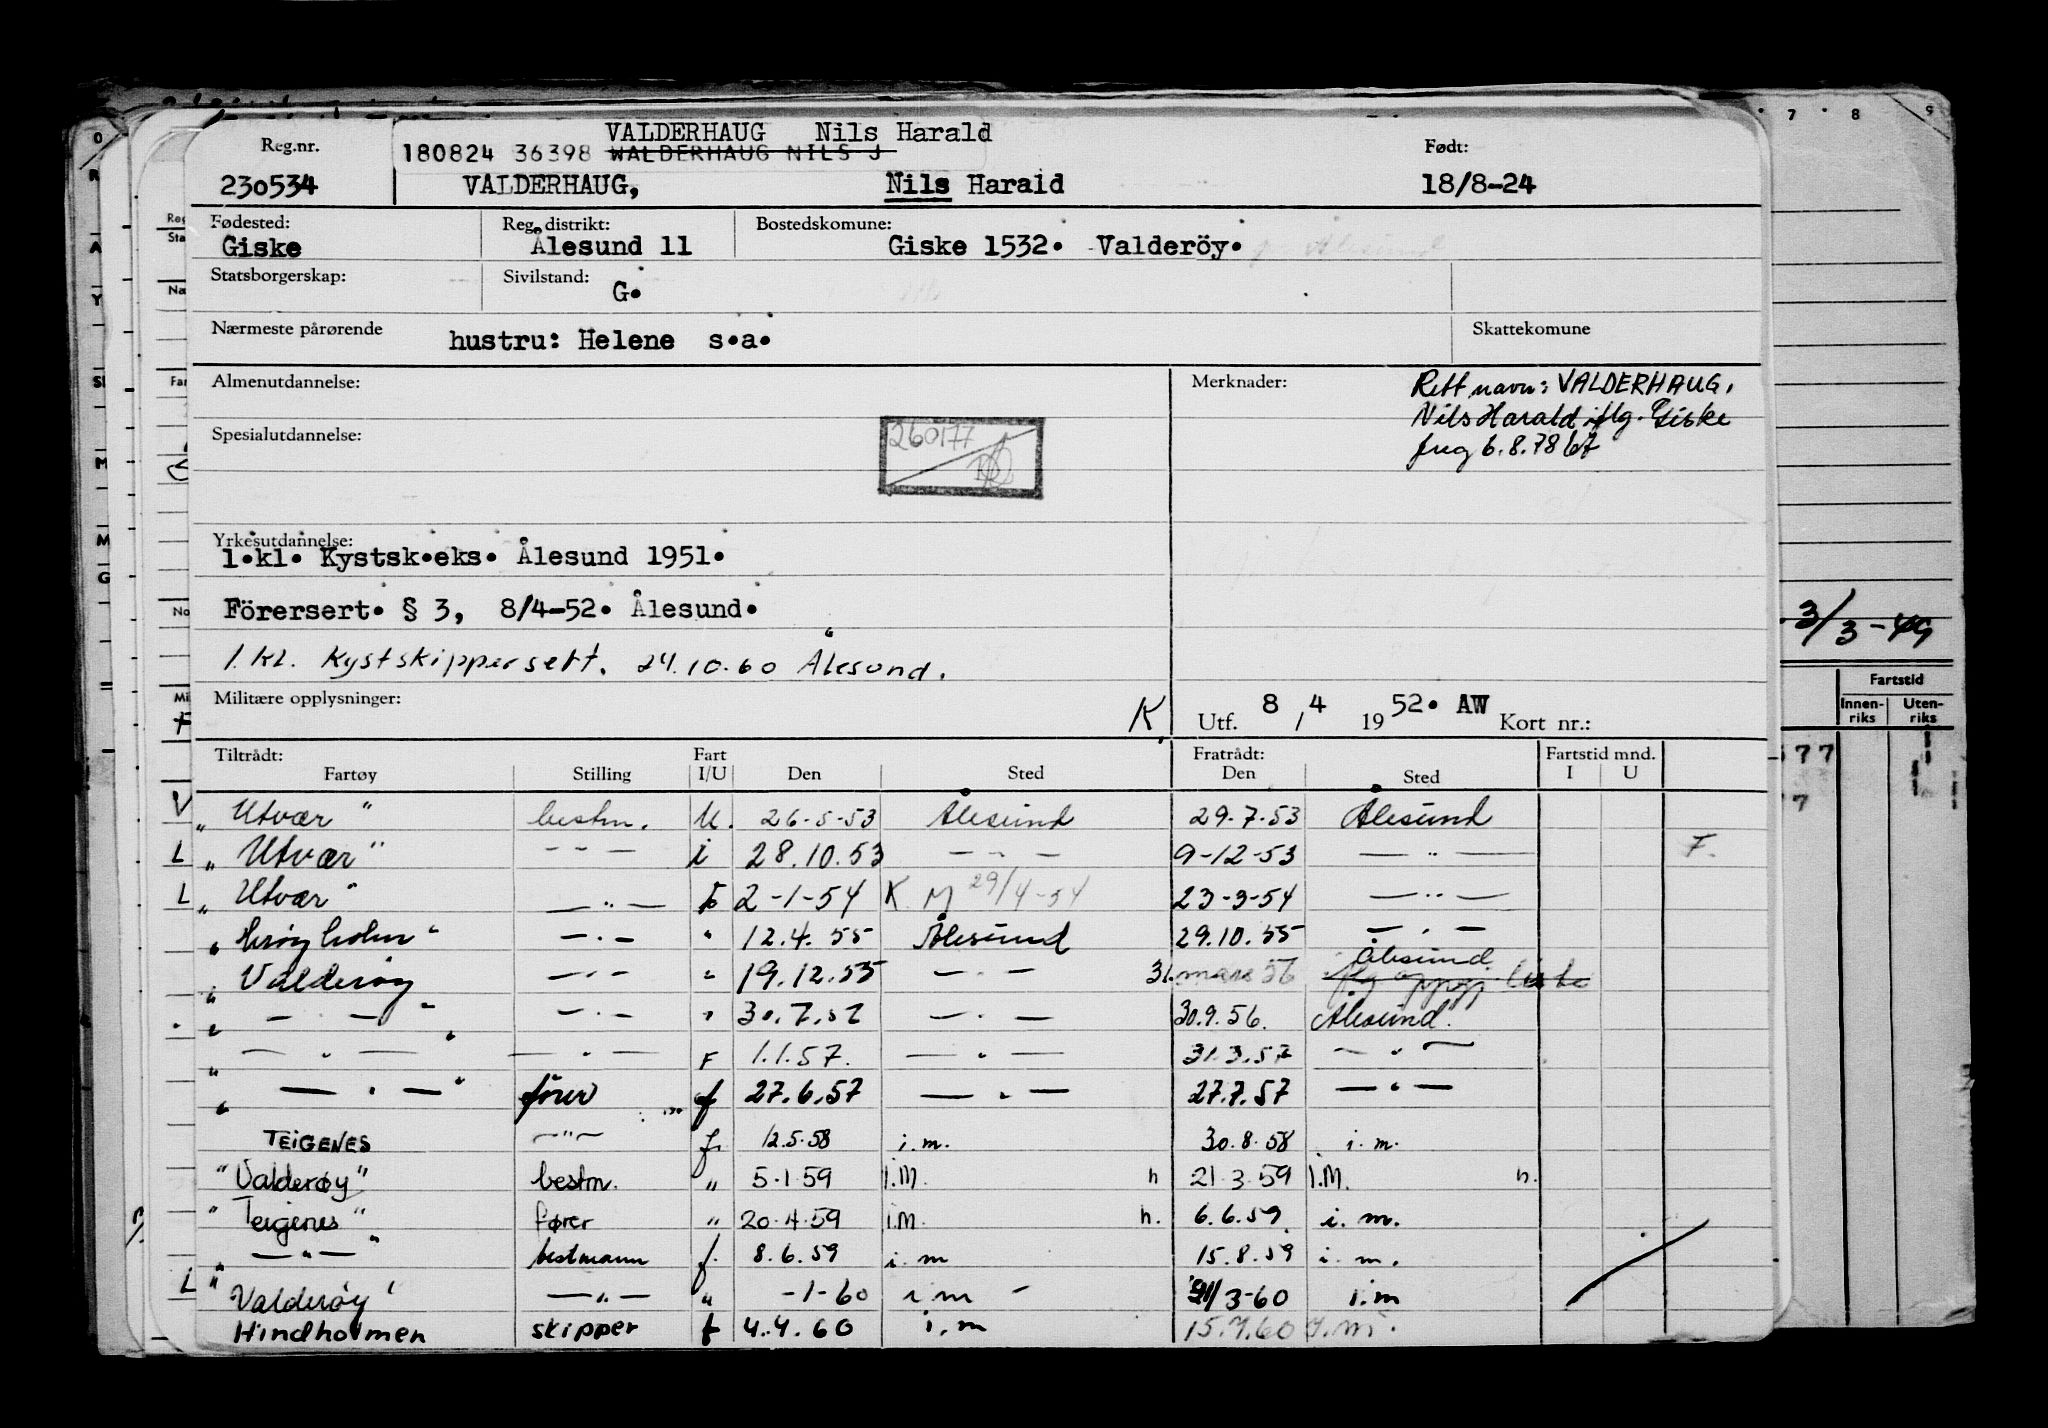 VALDERHAUG Nils Harald
Reg.nr. 180824 36398 WALDERHAUG NILS J Født:
230534 VALDERHAUG, Nils Harald 18/8-24
Fødested: Reg. distrikt: Bostedskomune:
Giske Ålesund 11 Giske 1532. Valderöy.
Statsborgerskap: Sivilstand:
G.
Nærmeste pårørende Skattekomune
hustru: Helene s.a.
Almenutdannelse: Merknader: Rett navn: VALDERHAUG,
Nils Harald iflg. Giske
Spesialutdannelse: 260177
freg 6.8.78
Yrkesutdannelse:
1.kl. Kystsk.eks. Ålesund 1951.
Förersert. § 3, 8/4-52. Ålesund.
1. kl. Kystskippersert. 24.10.60 Ålesund.
Militære opplysninger: K Utf. 8/4 1952. AW Kort nr.:
Tiltrådt: Fart Fratrådt: Fartstid mnd.
Fartøy Stilling I/U Den Sted Den Sted I U
V „ Utvær " bestm. U. 26-5-53 Ålesund 29.7.53 Ålesund
L „ Utvær" - - - i 28.10.53 — " — 9-12-53 — " — F.
L „ Utvær" — " — F 2-1-54 K M 29/4-54 23-3-54 — " —
„ " — " — " 12.4.55 Ålesund 29.10.55 — " —
„ Valderöy — " — " 19.12.55 — " — 31. mars 56 Ålesund
„ — " — " — " — " 30.7.56 — " — 30.9.56. Ålesund.
„ — " — — " — F 1.1.57. — " — 31.3.57 — " —
„ — " — " förer f 27.6.57 — " — 27.7.57 — " —
TEIGENES — " — f. 12.5.58 i.m. 30.8.58 i.m.
"Valderøy" bestm. " 5.1.59 I.M. n 21.3.59 I.M. n.
"Teigenes" fører " 20.4.59 i.M. n. 6.6.59 i.m.
" — " — " bestmann f. 8.6.59 i.m 15.8.59 i.m.
L " Valderöy' — " — " -1-60 i m - 31/3-60 i.m
Hindholmen skipper f 4.4.60 i.m 15.7.60 i.m.
7 8 9
3/3-49
Fartstid
Innen-riks Uten-riks